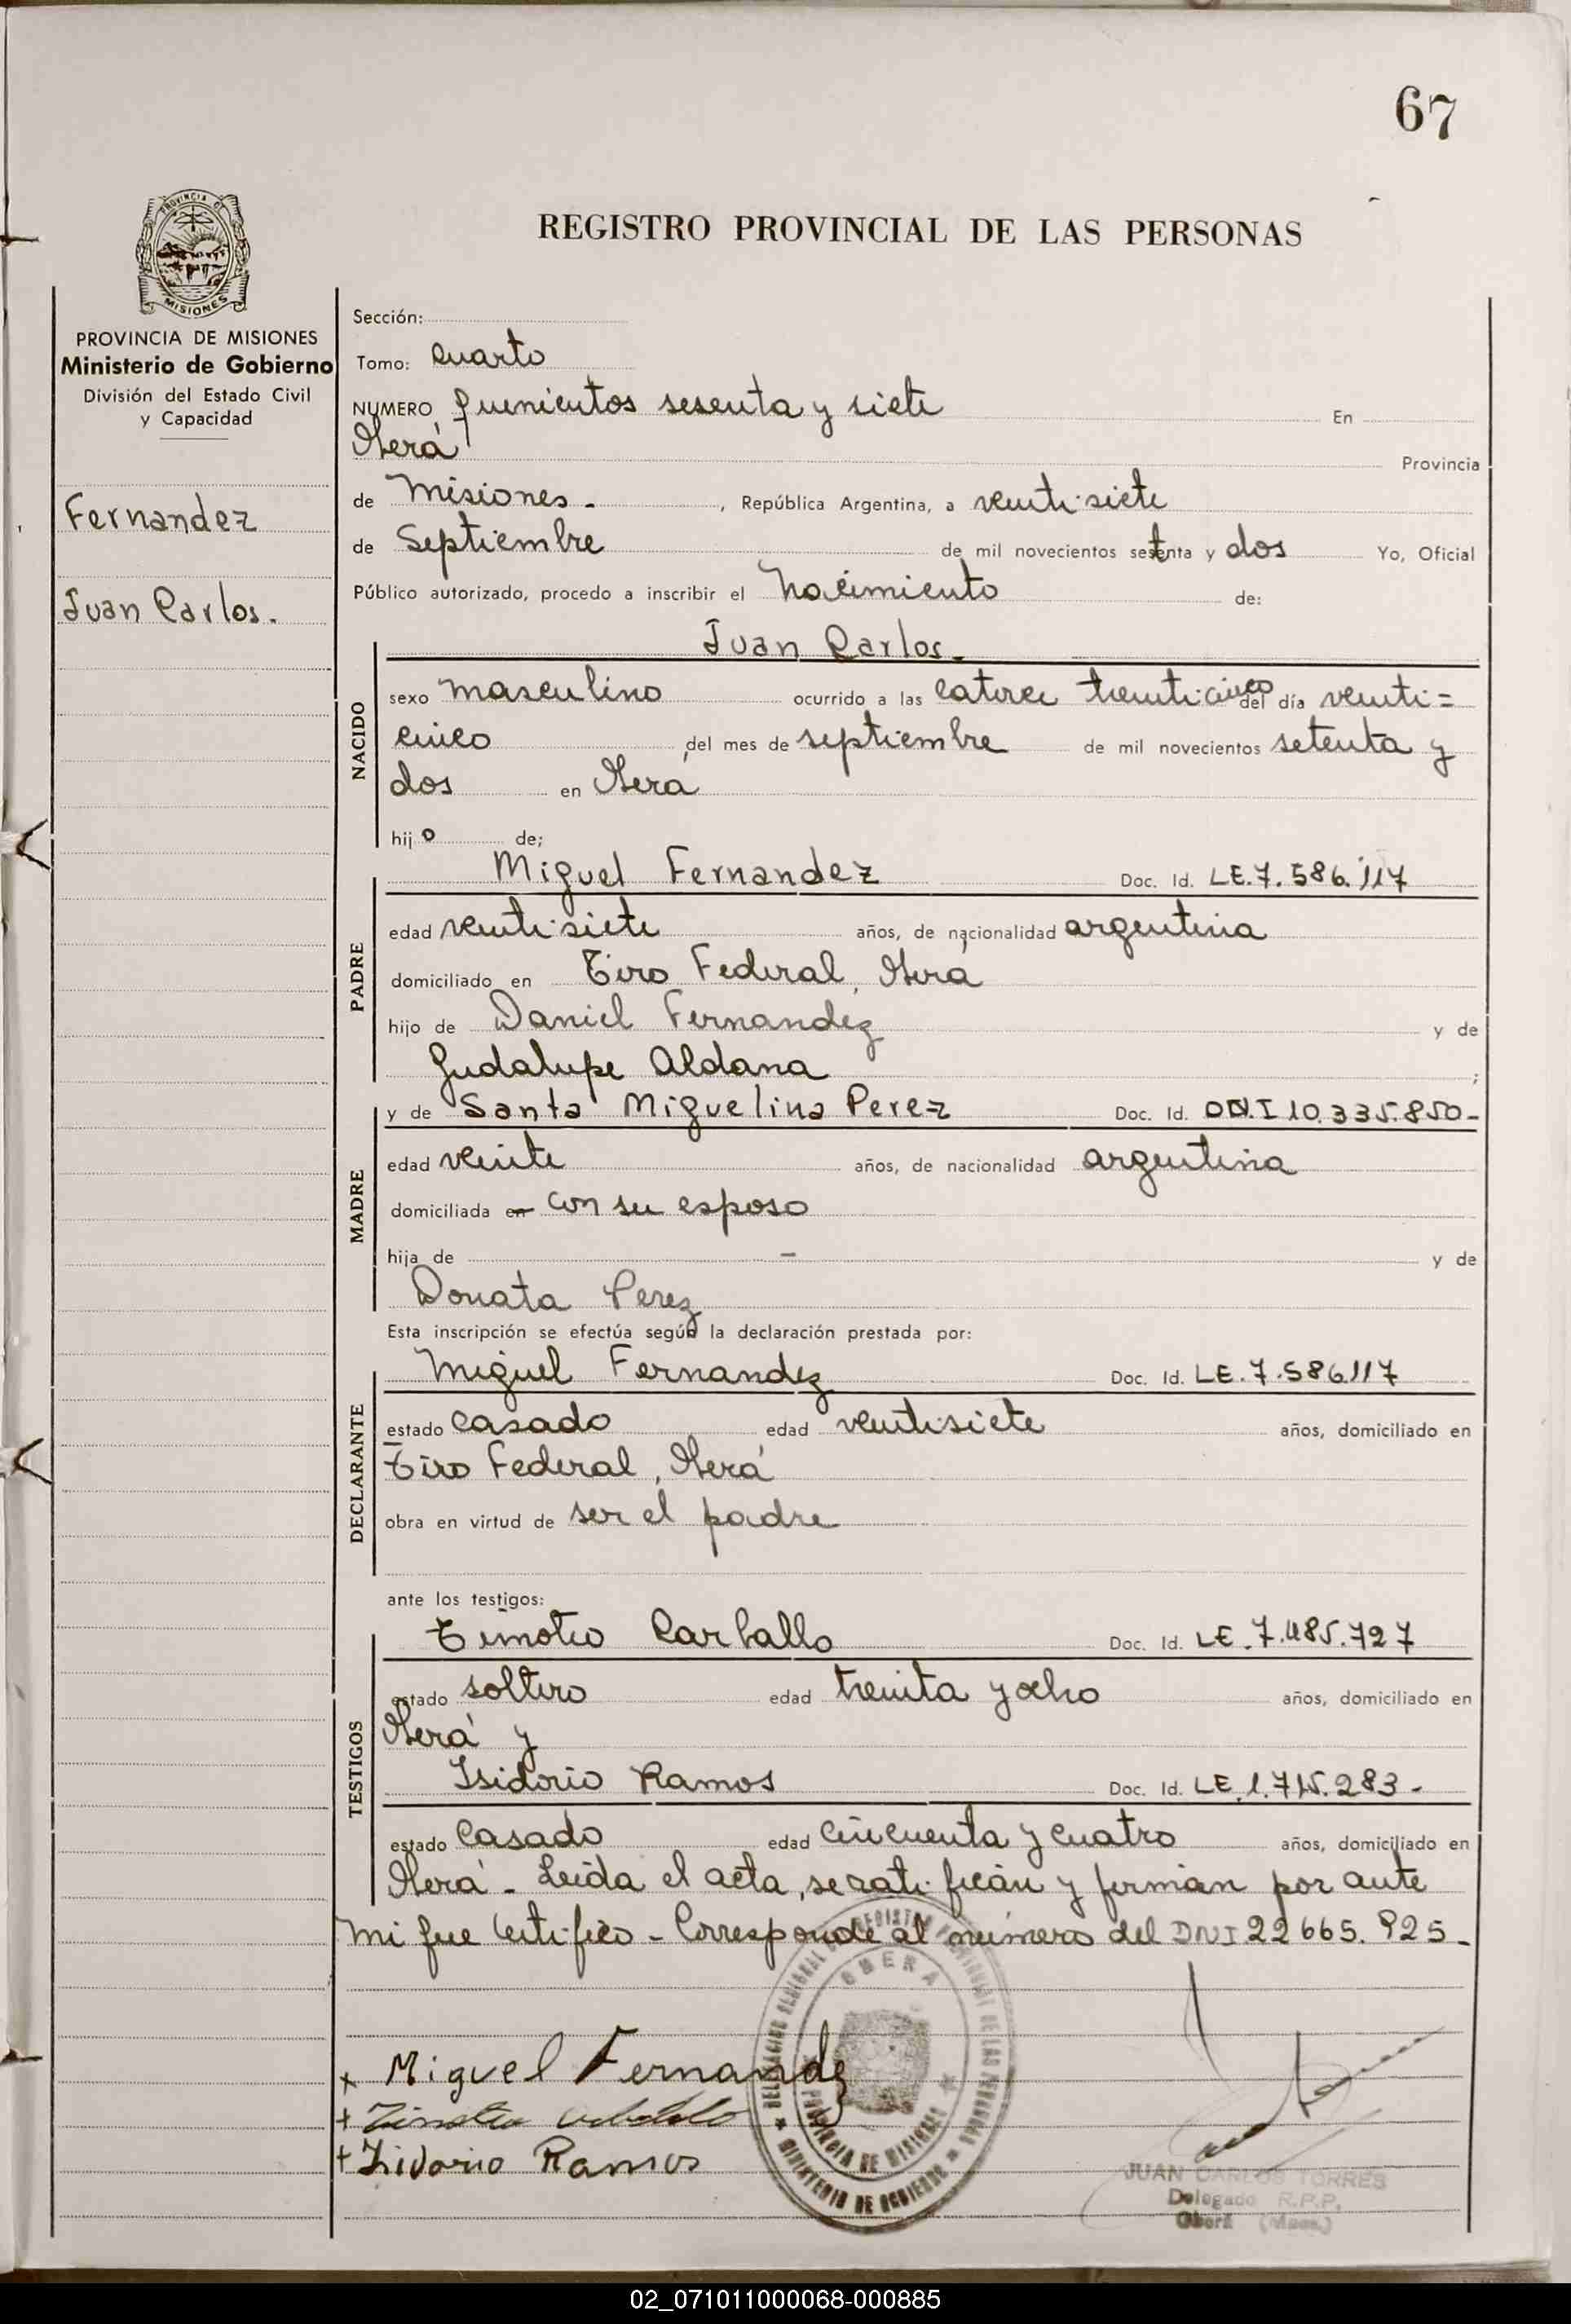 67
REGISTRO PROVINCIAL DE LAS PERSONAS
PROVINCIA DE MISIONES
PROVINCIA DE MISIONES
Ministerio de Gobierno
División del Estado Civil
y Capacidad
Fernandez
Juan Carlos.
Sección:
Tomo: Cuarto
NUMERO quinientos sesenta y siete En
Oberá Provincia
de Misiones - , República Argentina, a veintisiete
de Septiembre de mil novecientos setenta y dos Yo, Oficial
Público autorizado, procedo a inscribir el Nacimiento de:
Juan Carlos.
NACIDO
sexo masculino ocurrido a las catorce treinticinco del día veinti=
cinco del mes de septiembre de mil novecientos setenta y
dos en Oberá
hijo de;
PADRE
Miguel Fernandez Doc. Id. LE.7.586.117
edad veintisiete años, de nacionalidad argentina
domiciliado en Tiro Federal, Oberá
hijo de Daniel Fernandez y de
Gudalupe Aldana ;
MADRE
y de Santa Miguelina Perez Doc. Id. DN.I 10.335.850-
edad veinte años, de nacionalidad argentina
domiciliada en con su esposo
hija de - y de
Donata Perez
Esta inscripción se efectúa según la declaración prestada por:
DECLARANTE
Miguel Fernandez Doc. Id. LE.7.586.117
estado casado edad veintisiete años, domiciliado en
Tiro Federal, Oberá
obra en virtud de ser el padre
ante los testigos:
TESTIGOS
Timoteo Carballo Doc. Id. LE.7.485.727
estado soltero edad treinta y ocho años, domiciliado en
Oberá y
Isidorio Ramos Doc. Id. LE.1.715.283-
estado casado edad cincuenta y cuatro años, domiciliado en
Oberá - Leída el acta, se ratifican y firman por ante
mi que certifico - Corresponde al número del DNI 22 665.925-
OBERA
PROVINCIA DE MISIONES
MINISTERIO DE GOBIERNO
x Miguel Fernandez
+
+ Isidorio Ramos
JUAN CARLOS TORRES
Delegado R.P.P.
Oberá (Mnes.)
02_071011000068-000885